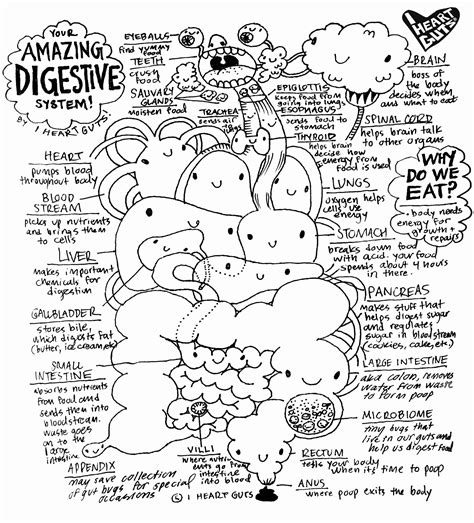 YOUR
AMAZING
DIGESTIVE
SYSTEM!
BY I HEART GUTS!
I HEART
GUTS!
EYEBALLS
find yummy
food
TEETH
crush
food
SALIVARY
GLANDS
moisten food
TRACHEA
sends air
EPIGLOTTIS
keeps food from
going into lungs
ESOPHAGUS
sends food to
stomach
THYROID
helps brain
decide how
energy from
food is used
BRAIN
boss of
the body
decides when
and what to eat
SPINAL CORD
helps brain talk
to other organs
WHY
DO WE
EAT?
• body needs
energy for
growth +
repairs
HEART
pumps blood
throughout body
BLOOD
STREAM
picks up nutrients
and brings them
to cells
LIVER
makes important
chemicals for
digestion
GALLBLADDER
stores bile,
which digests fat
(butter, ice cream, etc)
SMALL
INTESTINE
absorbs nutrients
from food and
sends them into
bloodstream.
waste goes
on to the
large
intestine
APPENDIX
may save collection
of gut bugs for special
occasions
LUNGS
oxygen helps
cells use
energy
STOMACH
breaks down food
with acid. your food
spends about 4 hours
in there.
PANCREAS
makes stuff that
helps digest sugar
and regulates
sugar in bloodstream
(cookies, cake, etc.)
LARGE INTESTINE
aka colon, removes
water from waste
to form poop
MICROBIOME
tiny bugs that
live in our guts and
help us digest food
VILLI
where nutrients
go from
intestine into
blood
RECTUM
tells your body
when it's time to poop
ANUS
where poop exits the body
© I HEART GUTS